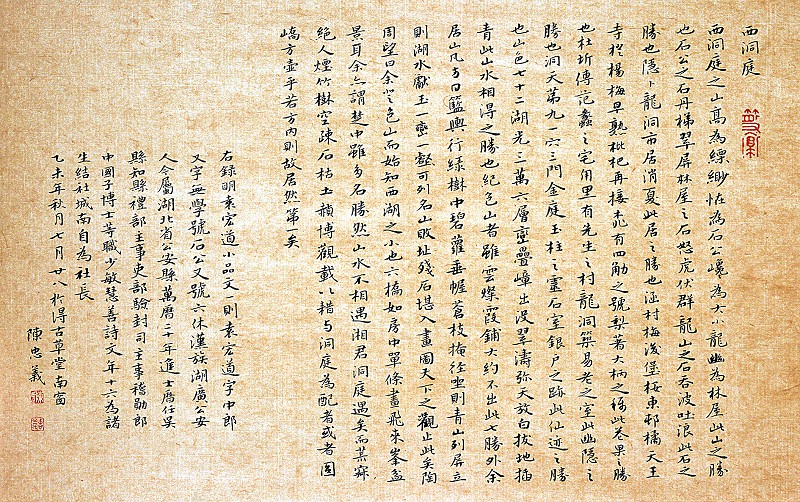 西洞庭
西洞庭之山高為縹緲恠為石公巉為大小龍幽為林屋此山之勝
也石公之石丹梯翠屏林屋之石怒虎伏群龍山之石吞波吐浪此石之
勝也隱卜龍洞市居消夏此居之勝也涵村梅後堡櫻東邨橘天王
寺橙楊梅早熟枇杷再接桃有四觔之號梨著大柄之稱此花果之勝
也杜圻傳范蠡之宅甪里有先生之村龍洞築易老之室此幽隱之
勝也洞天第九一穴三門金庭玉柱之靈石室銀戶之跡此仙迹之勝
也山色七十二湖光三萬六層巒疊嶂出沒翠濤弥天放白拔地插
青此山水相得之勝也紀包山者雖雲燦霞鋪大約不出此七勝外余
居山凡兩日籃輿行綠樹中碧蘿垂幄蒼枝掩徑坐則青山列屏立
則湖水獻玉一巒一壑可列名山敗址殘石堪入畫圖天下之觀止此矣陶
周望曰余登包山而始知西湖之小也六橋如房中單條畫飛來峯盆
景耳余亦謂楚中雖多名勝然山水不相遇湘君洞庭遇矣而荒寐
絕人煙竹樹空疎石枯土頳博觀載籍與洞庭為配者或者圓
嶠方壺乎若方內則故居然第一矣
右錄明袁宏道小品文一則袁宏道字中郎
又字無學號石公又號六休漢族湖廣公安
人今屬湖北省公安縣萬曆二十年進士歷任吳
縣知縣禮部主事吏部驗封司主事稽勛郎
中國子博士等職少敏慧善詩文年十六為諸
生結社城南自為社長
乙未年秋月七月廿八於得古草堂南窗
陳忠義